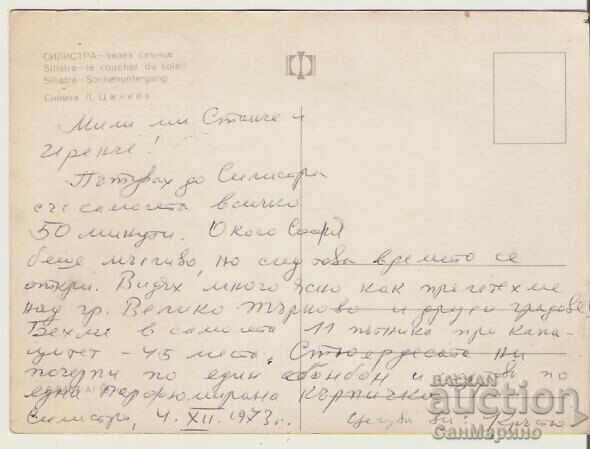 СИЛИСТРА — залез слънце
Silistra — le coucher du soleil
Silistra — Sonnenuntergang
Снимка Л. Цанкова
Мили ми Станче и
Иренче!
Пътувах до Силистра
със самолета всичко
50 минути. Около София
беше мъгливо, но след това времето се
откри. Видях много ясно как прелетяхме
над гр. Велико Търново и други градове
Бяхме в самолета 11 пътника при капа-
цитет - 45 места. Стюардесата ни
почерпи по един бонбон и по
една парфюмирана кърпичка
Силистра, 4.XII.1973 г. Целува ви: Кръстю
BALKAN
auction
СанМарино